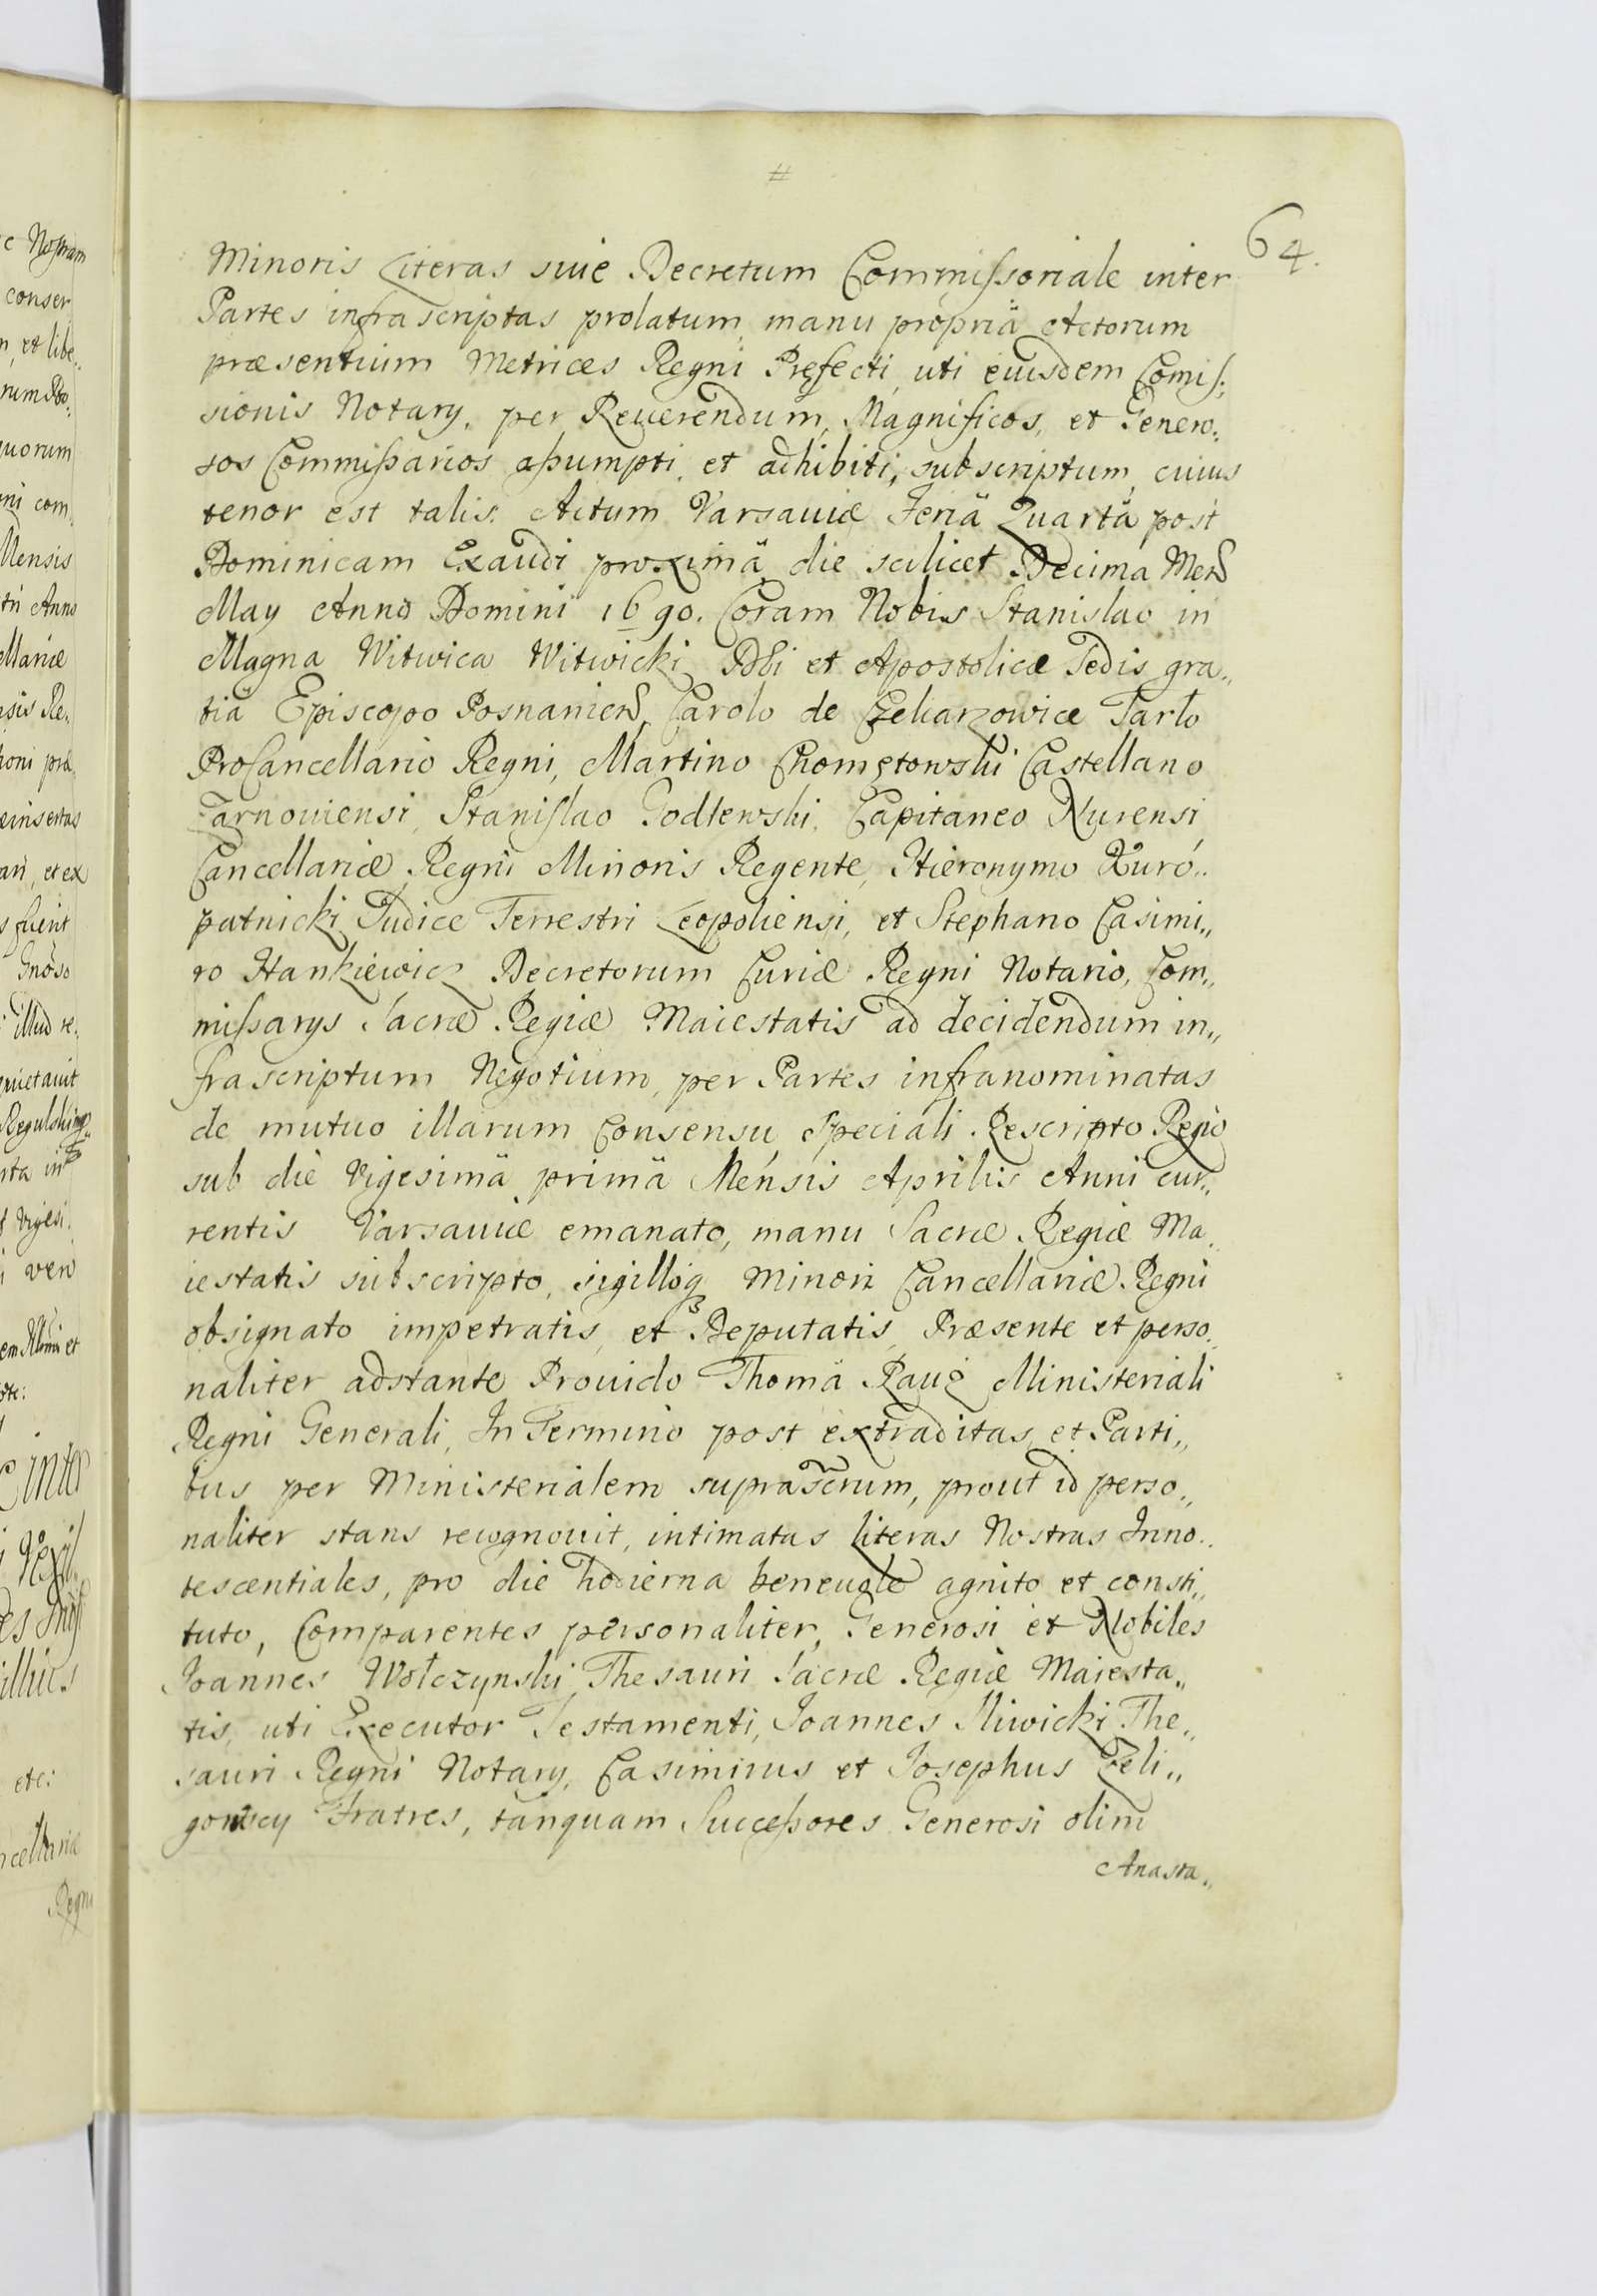 #
64.
Minoris Literas siue Decretum Commissoriale inter
Partes infrascriptas prolatum, manu propriâ Actorum
præsentium Metrices Regni Præfecti, uti eiusdem Comis:
sionis Notarÿ, per Reuerendum, Magnificos, et Genero:
sos Commissarios assumpti, et adhibiti, subscriptum, cuius
tenor est talis. Actum Varsauiæ Feriâ Quartâ post
Dominicam Exaudi proximâ, die scilicet Decima Mens
May Anno Domini 1690. Coram Nobis Stanislao in
Magna Witwica Witwicki Dei et Apostolicæ Sedis gra„
tiâ Episcopo Posnaniens, Carolo de Czekarzowice Tarło
ProCancellario Regni, Martino Chomętowski Castellano
Tarnouiensi, Stanislao Godlewski, Capitaneo Nurensi
Cancellariæ Regni Minoris Regente, Hieronymo Kuro„
patnicki Judice Terrestri Leopoliensi, et Stephano Casimi„
ro Hankiewicz Decretorum Curiæ Regni Notario, Com„
missarÿs Sacræ Regiæ Maiestatis ad decidendum in„
frascriptum Negotium, per Partes infranominatas
de mutuo illarum Consensu, speciali Rescripto Regio
sub die Vigesimâ primâ Mensis Aprilis Anni cur„
rentis Varsauiæ emanato, manu Sacræ Regiæ Ma„
iestatis subscripto, sigilloq3 Minori Cancellariæ Regni
obsignato impetratis, et Deputatis, Præsente et perso„
naliter adstante Prouido Thomâ Ministeriali
Regni Generali, In Termino post extraditas, et Parti„
bus per Ministerialem suprascrum, prout id perso„
naliter stans recognouit, intimatas literas Nostras Inno„
tescentiales, pro die hodierna beneuole agnito et consti„
tuto, Comparentes personaliter, Generosi et Nobiles
Joannes Wołczynski Thesauri Sacræ Regiæ Maiesta„
tis, uti Executor Testamenti, Joannes Sliwicki The„
sauri Regni Notarÿ, Casimirus et Josephus Zeli„
gowscy Fratres, tanquam Successores Generosi olim
Anasta„